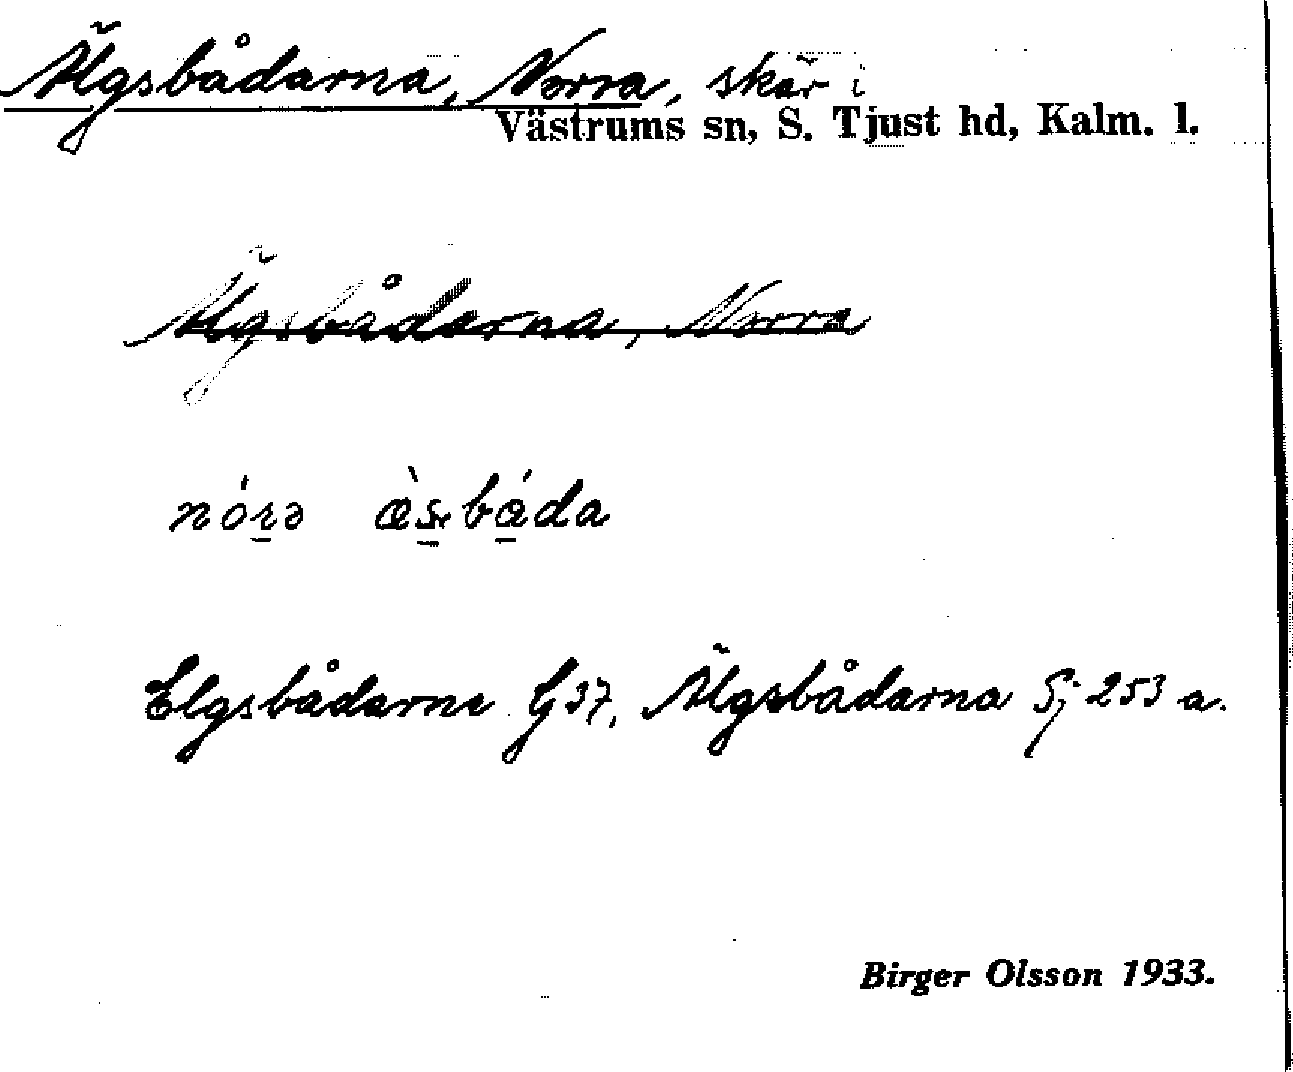 Älgsbådarna, Norra, skär i
Västrums sn, S. Tjust hd, Kalm. l.
Älgsbådarna, Norra
nórə æ̀sbáda
Elgsbådarne G 37, Älgsbådarna Sj 253 a.
Birger Olsson 1933.